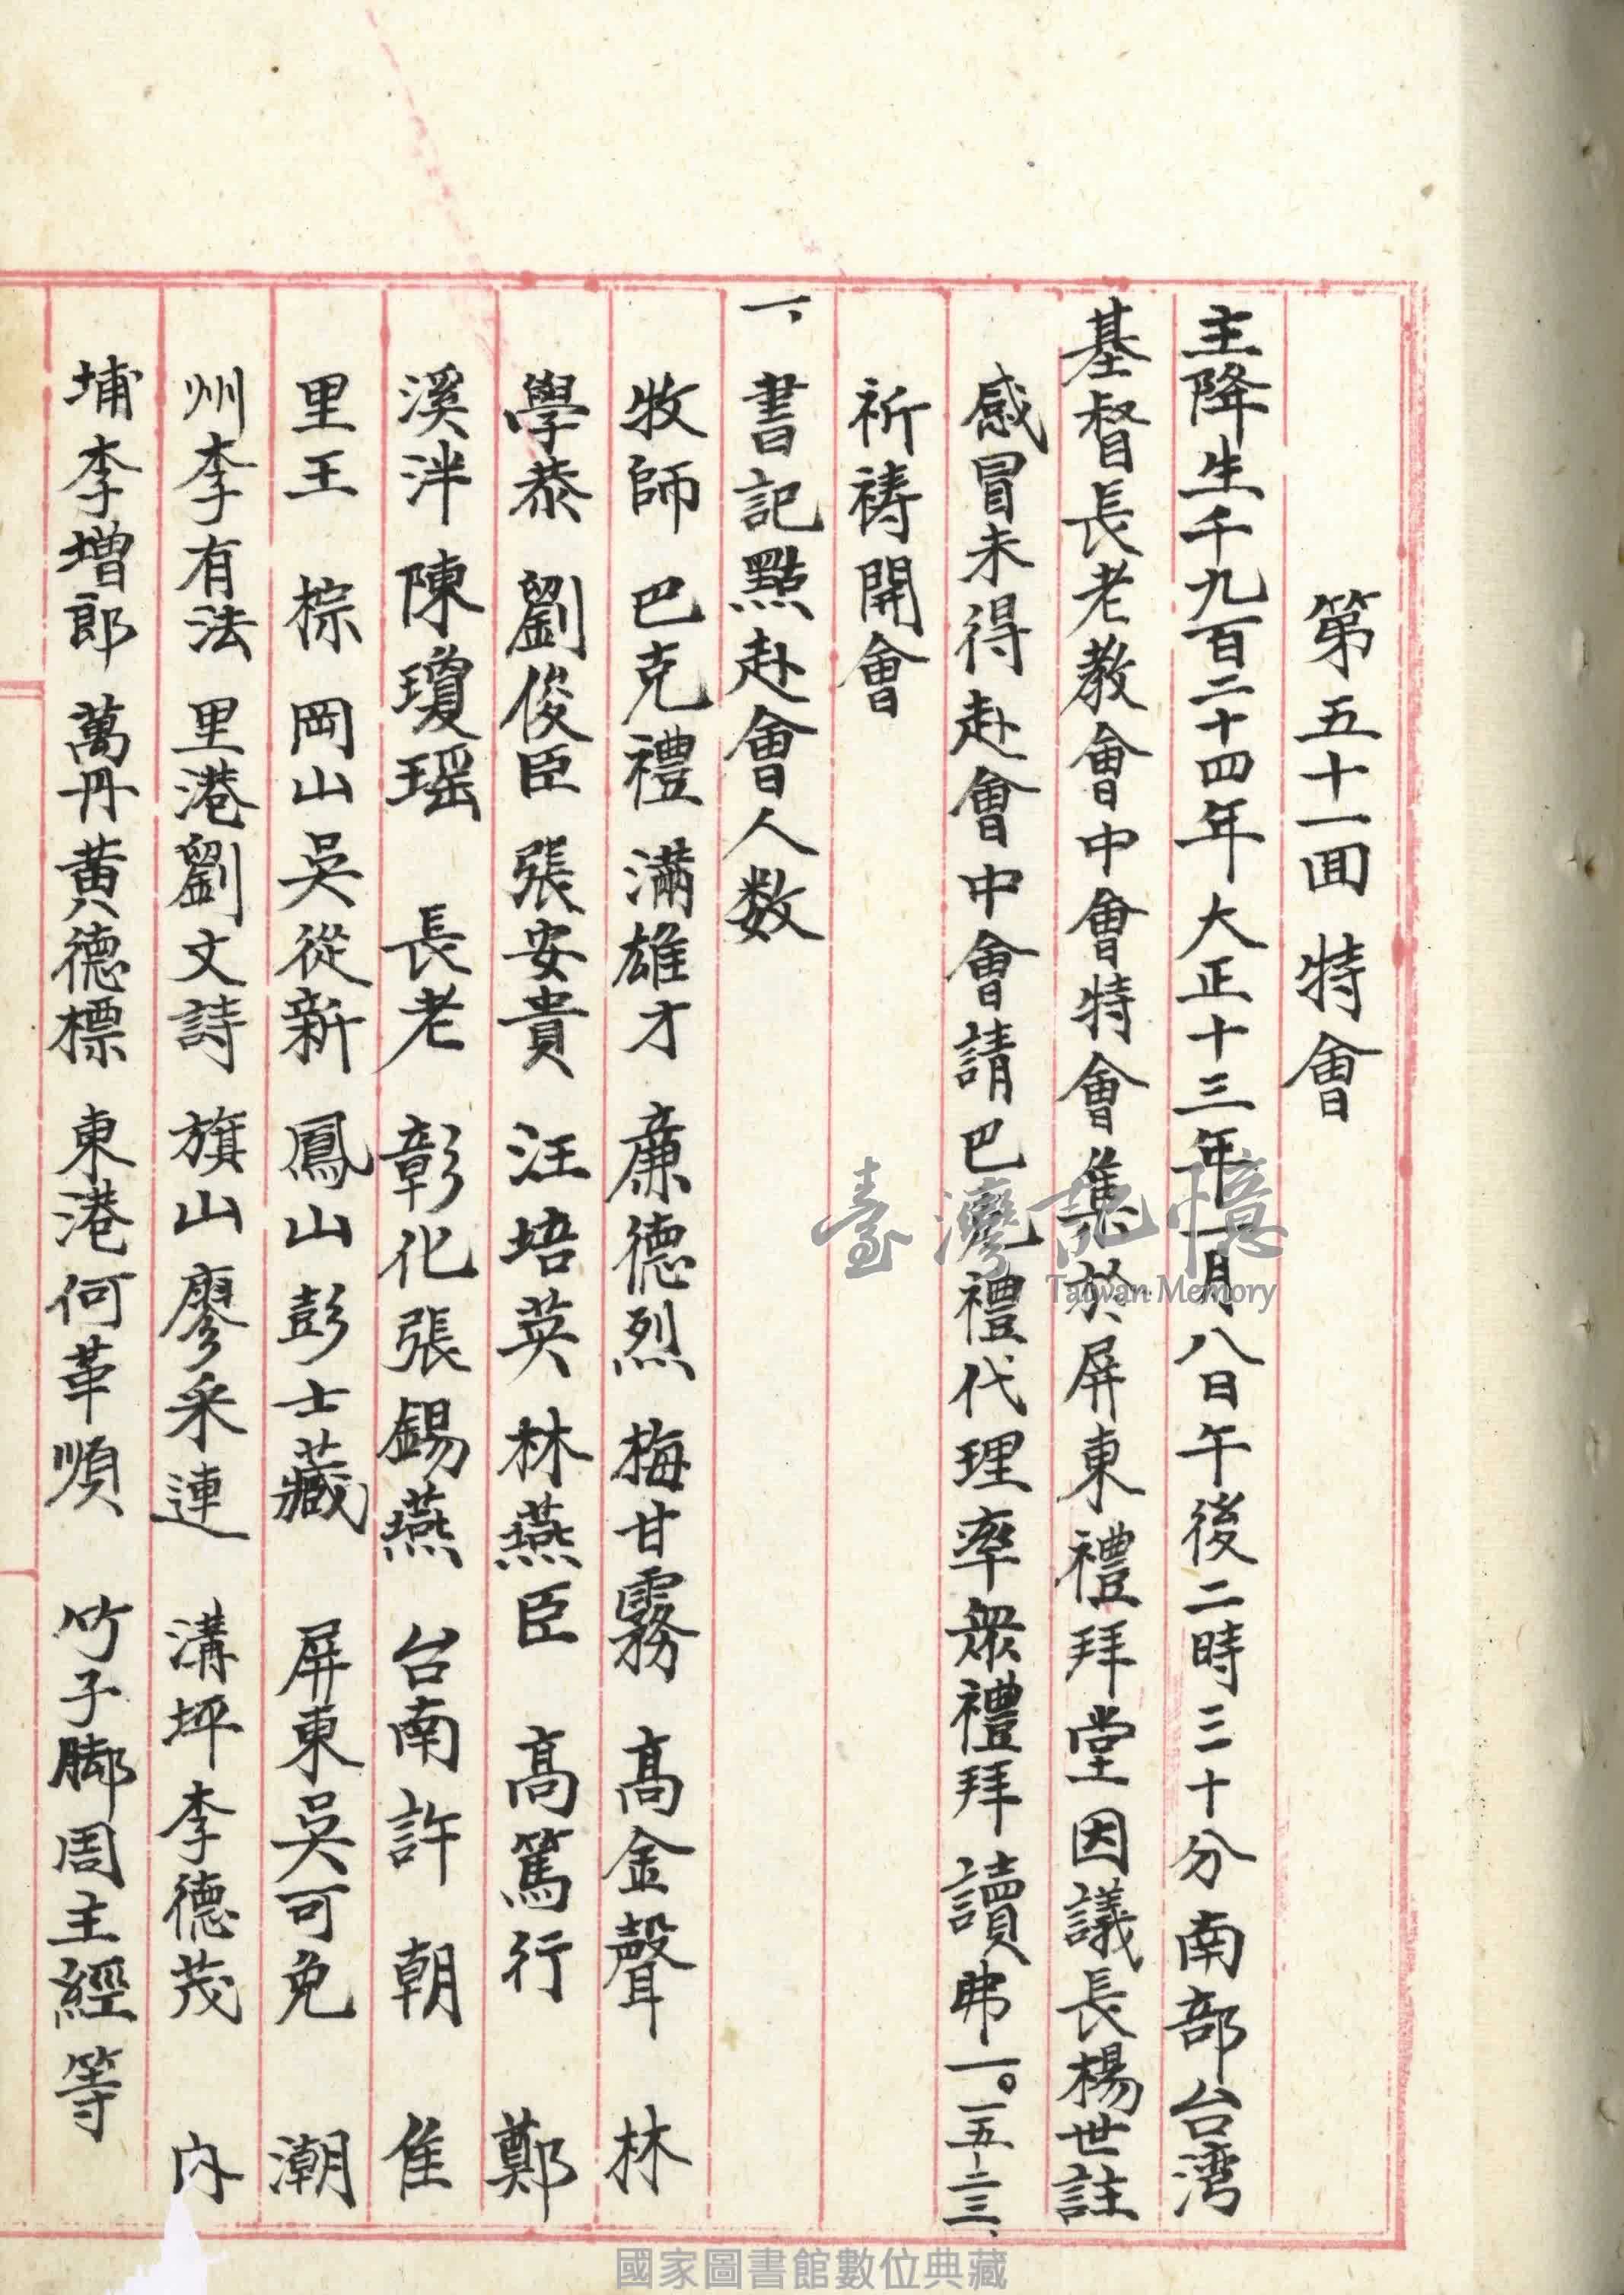 第五十一囬 特會
主降生千九百二十四年大正十三年一月八日午後二時三十分南部台湾
基督長老教會中會特會集於屏東禮拜堂因議長楊世註
感冒未得赴會中會請巴克禮代理率衆禮拜讀弗一。一五-二三、
祈禱開會
一、書記點赴會人数
牧師 巴克禮 滿雄才 廉德烈 梅甘霧 高金聲 林
學恭 劉俊臣 張安貴 汪培英 林燕臣 高篤行 鄭
溪泮 陳瓊瑶 長老 彰化張錫燕 台南許朝 隹
里王棕 岡山吳從新 鳳山彭士藏 屏東吳可免 潮
州李有法 里港劉文詩 旗山廖釆連 溝坪李德茂 內
埔李増郎 萬丹黃德標 東港何革順 竹子脚周主經等
臺灣記憶
Taiwan Memory
國家圖書館數位典藏